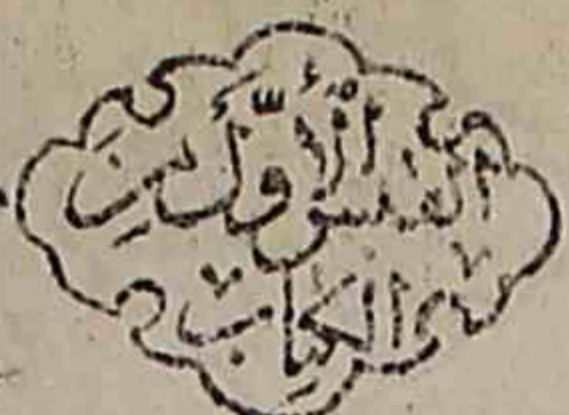 القسم الْأَوَّلُ مِن
الكتاب